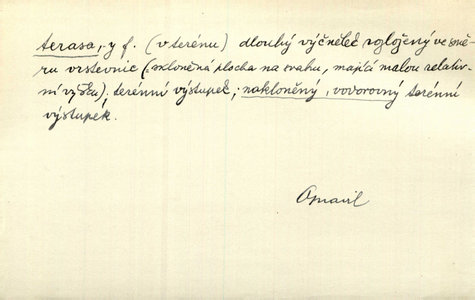 terasa, -y f. (v terénu) dlouhý výčnělek rozložený ve smě-
ru vrstevnic (: skloněná plocha na svahu, mající malou relativ-
ní výšku), terénní výstupek; nakloněný, vodorovný terénní
výstupek.